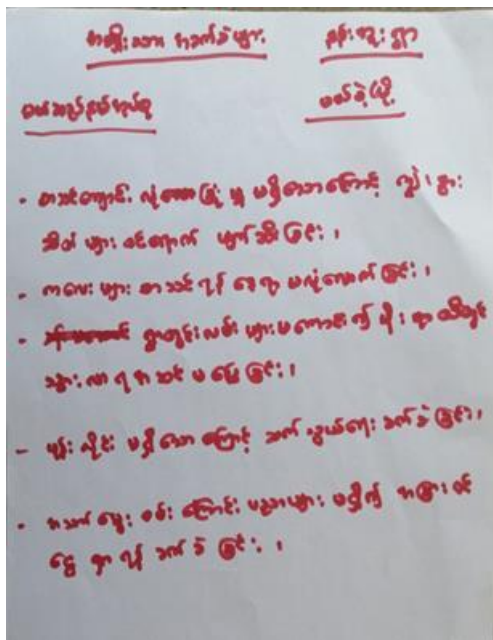 အမျိုးသား အခက်ခဲများ နန်းဦး ရွာ
မယ်ဆည်နမ်အုပ်စု မယ်စဲ့မြို့
- စာသင်ကျောင်း လုံခြုံ မှု မရှိသောကြောင့် ကျွဲ၊ နွား
အိတ် များ ဝင်ရောက် ဖျက်ဆီးခြင်း ၊
- ကလေး များ စာသင် ရန် နေရာ မလုံလောက် ခြင်း ၊
- ရွာတွင်း လမ်း များ မကောင်း ၍ မိုး ရာသီတွင်
သွား လာ ရ အဆင် မ ပြေ ခြင်း ၊
- ဖုန်း လိုင်း မရှိသော ကြောင့် ဆက် သွယ်ရေး ခက်ခဲ ခြင်း ၊
- အသက် မွေး ဝမ်း ကြောင်း ပညာများ မရှိ၍ အခြား ဝင်
ငွေ ရှာ ရန် ခက် ခဲ ခြင်း ၊